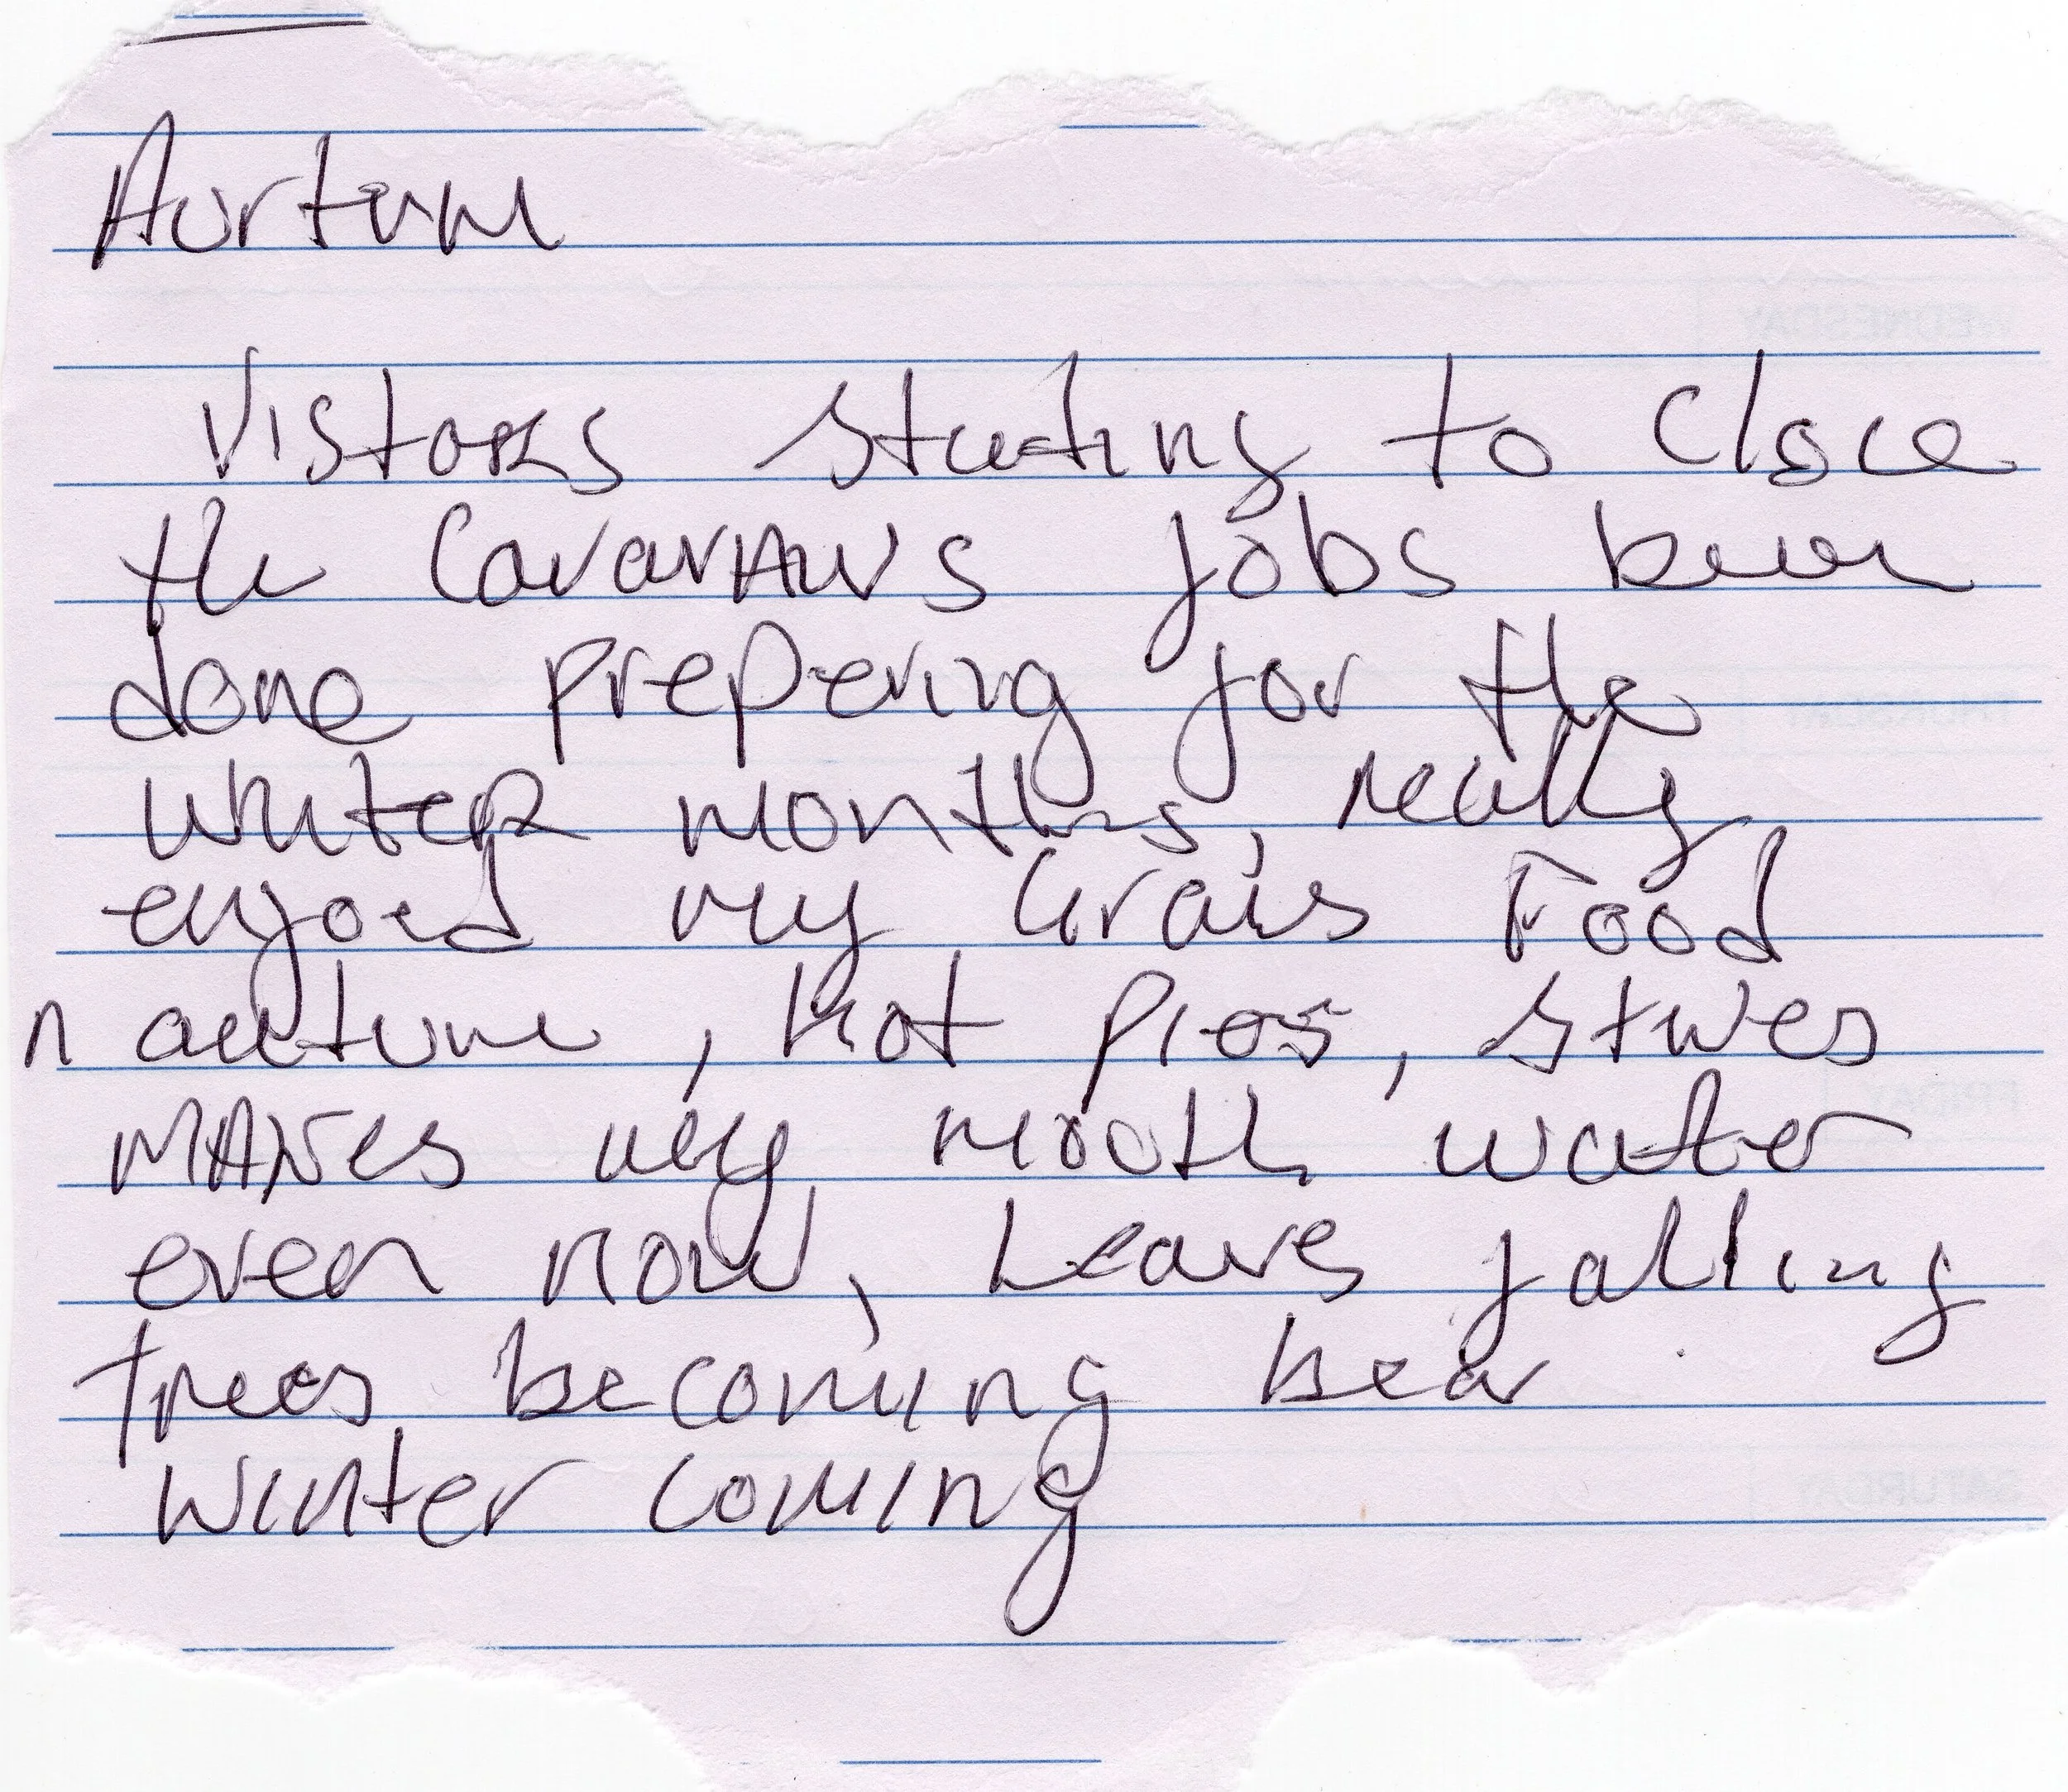 Aurtum
Vistores starting to close
the Cavarvans jobs been
done prepering for the
winter months, really
enjoed my Grans Food
n auutum, hot pies, stwes
MAKes my mooth water
even now, Leaves falling
trees becoming bear
winter coming
WEDNESDAY
FRIDAY